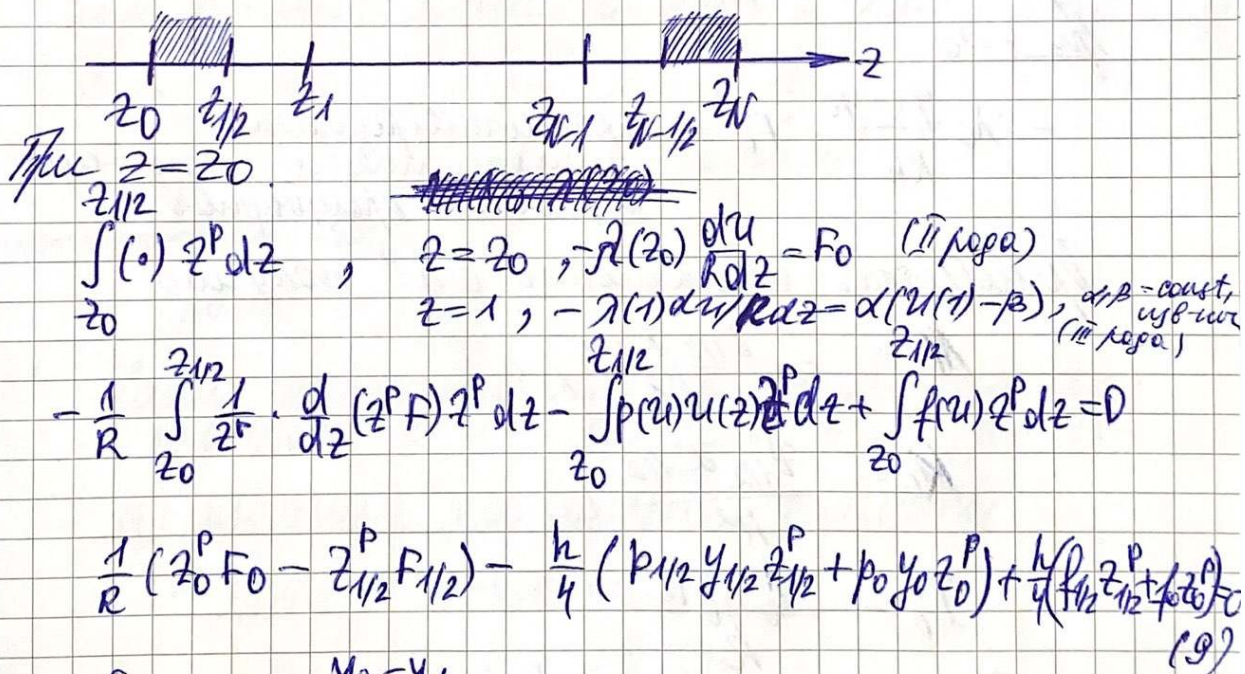 z
z_0 z_{1/2} z_1 z_{N-1} z_{N-1/2} z_N
При z = z_0
∫_{z_0}^{z_{1/2}} (·) z^p dz , z = z_0 , -λ(z_0) du/(R dz) = F_0 (II рода)
z = 1 , -λ(1) du/R dz = α(u(1) - β) , α, β = const,
(III рода)
-1/R ∫_{z_0}^{z_{1/2}} 1/z^p · d/dz (z^p F) z^p dz - ∫_{z_0}^{z_{1/2}} p(u) u(z) z^p dz + ∫_{z_0}^{z_{1/2}} f(u) z^p dz = 0
1/R (z_0^p F_0 - z_{1/2}^p F_{1/2}) - h/4 (p_{1/2} y_{1/2} z_{1/2}^p + p_0 y_0 z_0^p) + h/4 (f_{1/2} z_{1/2}^p + f_0 z_0^p) = 0
(9)